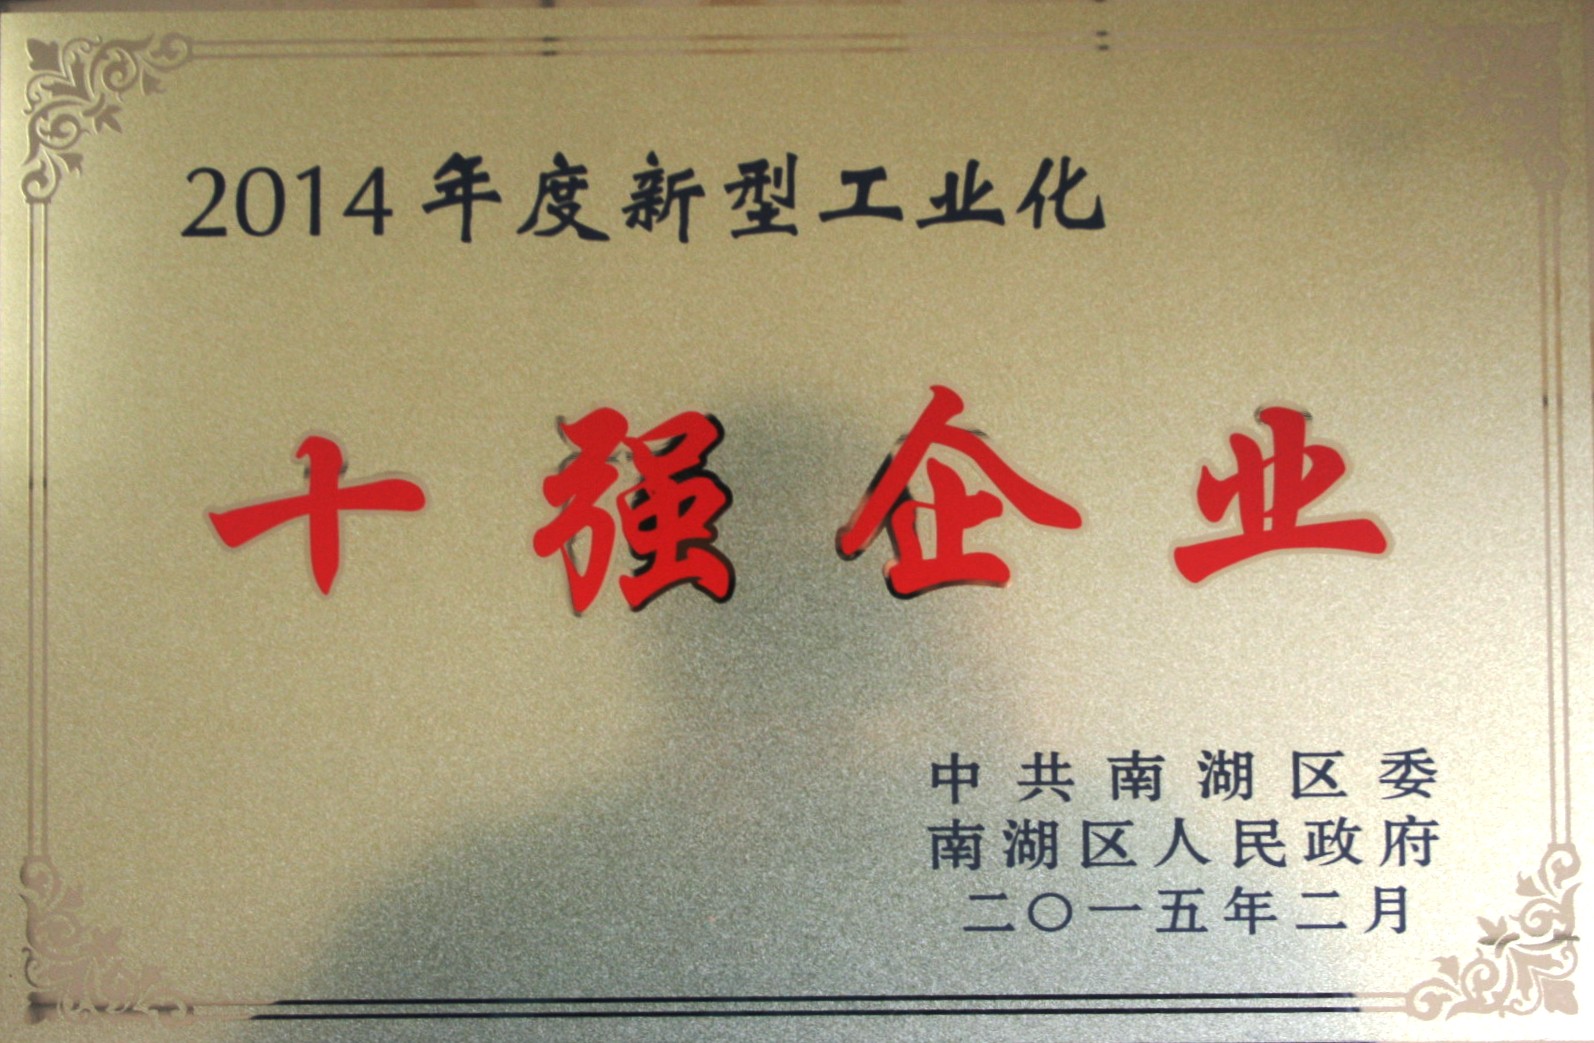 2014年度新型工业化
十强企业
中共南湖区委
南湖区人民政府
二〇一五年二月